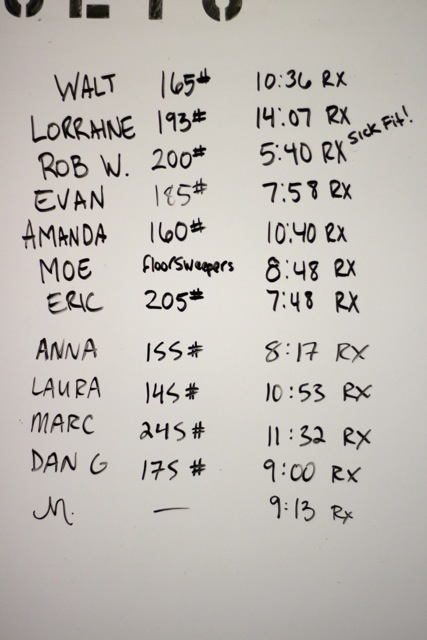 WALT 165# 10:36 RX
LORRAINE 193# 14:07 RX
ROB W. 200# 5:40 RX Sick Fit!
EVAN 185# 7:58 RX
AMANDA 160# 10:40 RX
MOE floorsweepers 8:48 RX
ERIC 205# 7:48 RX
ANNA 155# 8:17 RX
LAURA 145# 10:53 RX
MARC 245# 11:32 RX
DAN G 175# 9:00 RX
M. — 9:13 RX